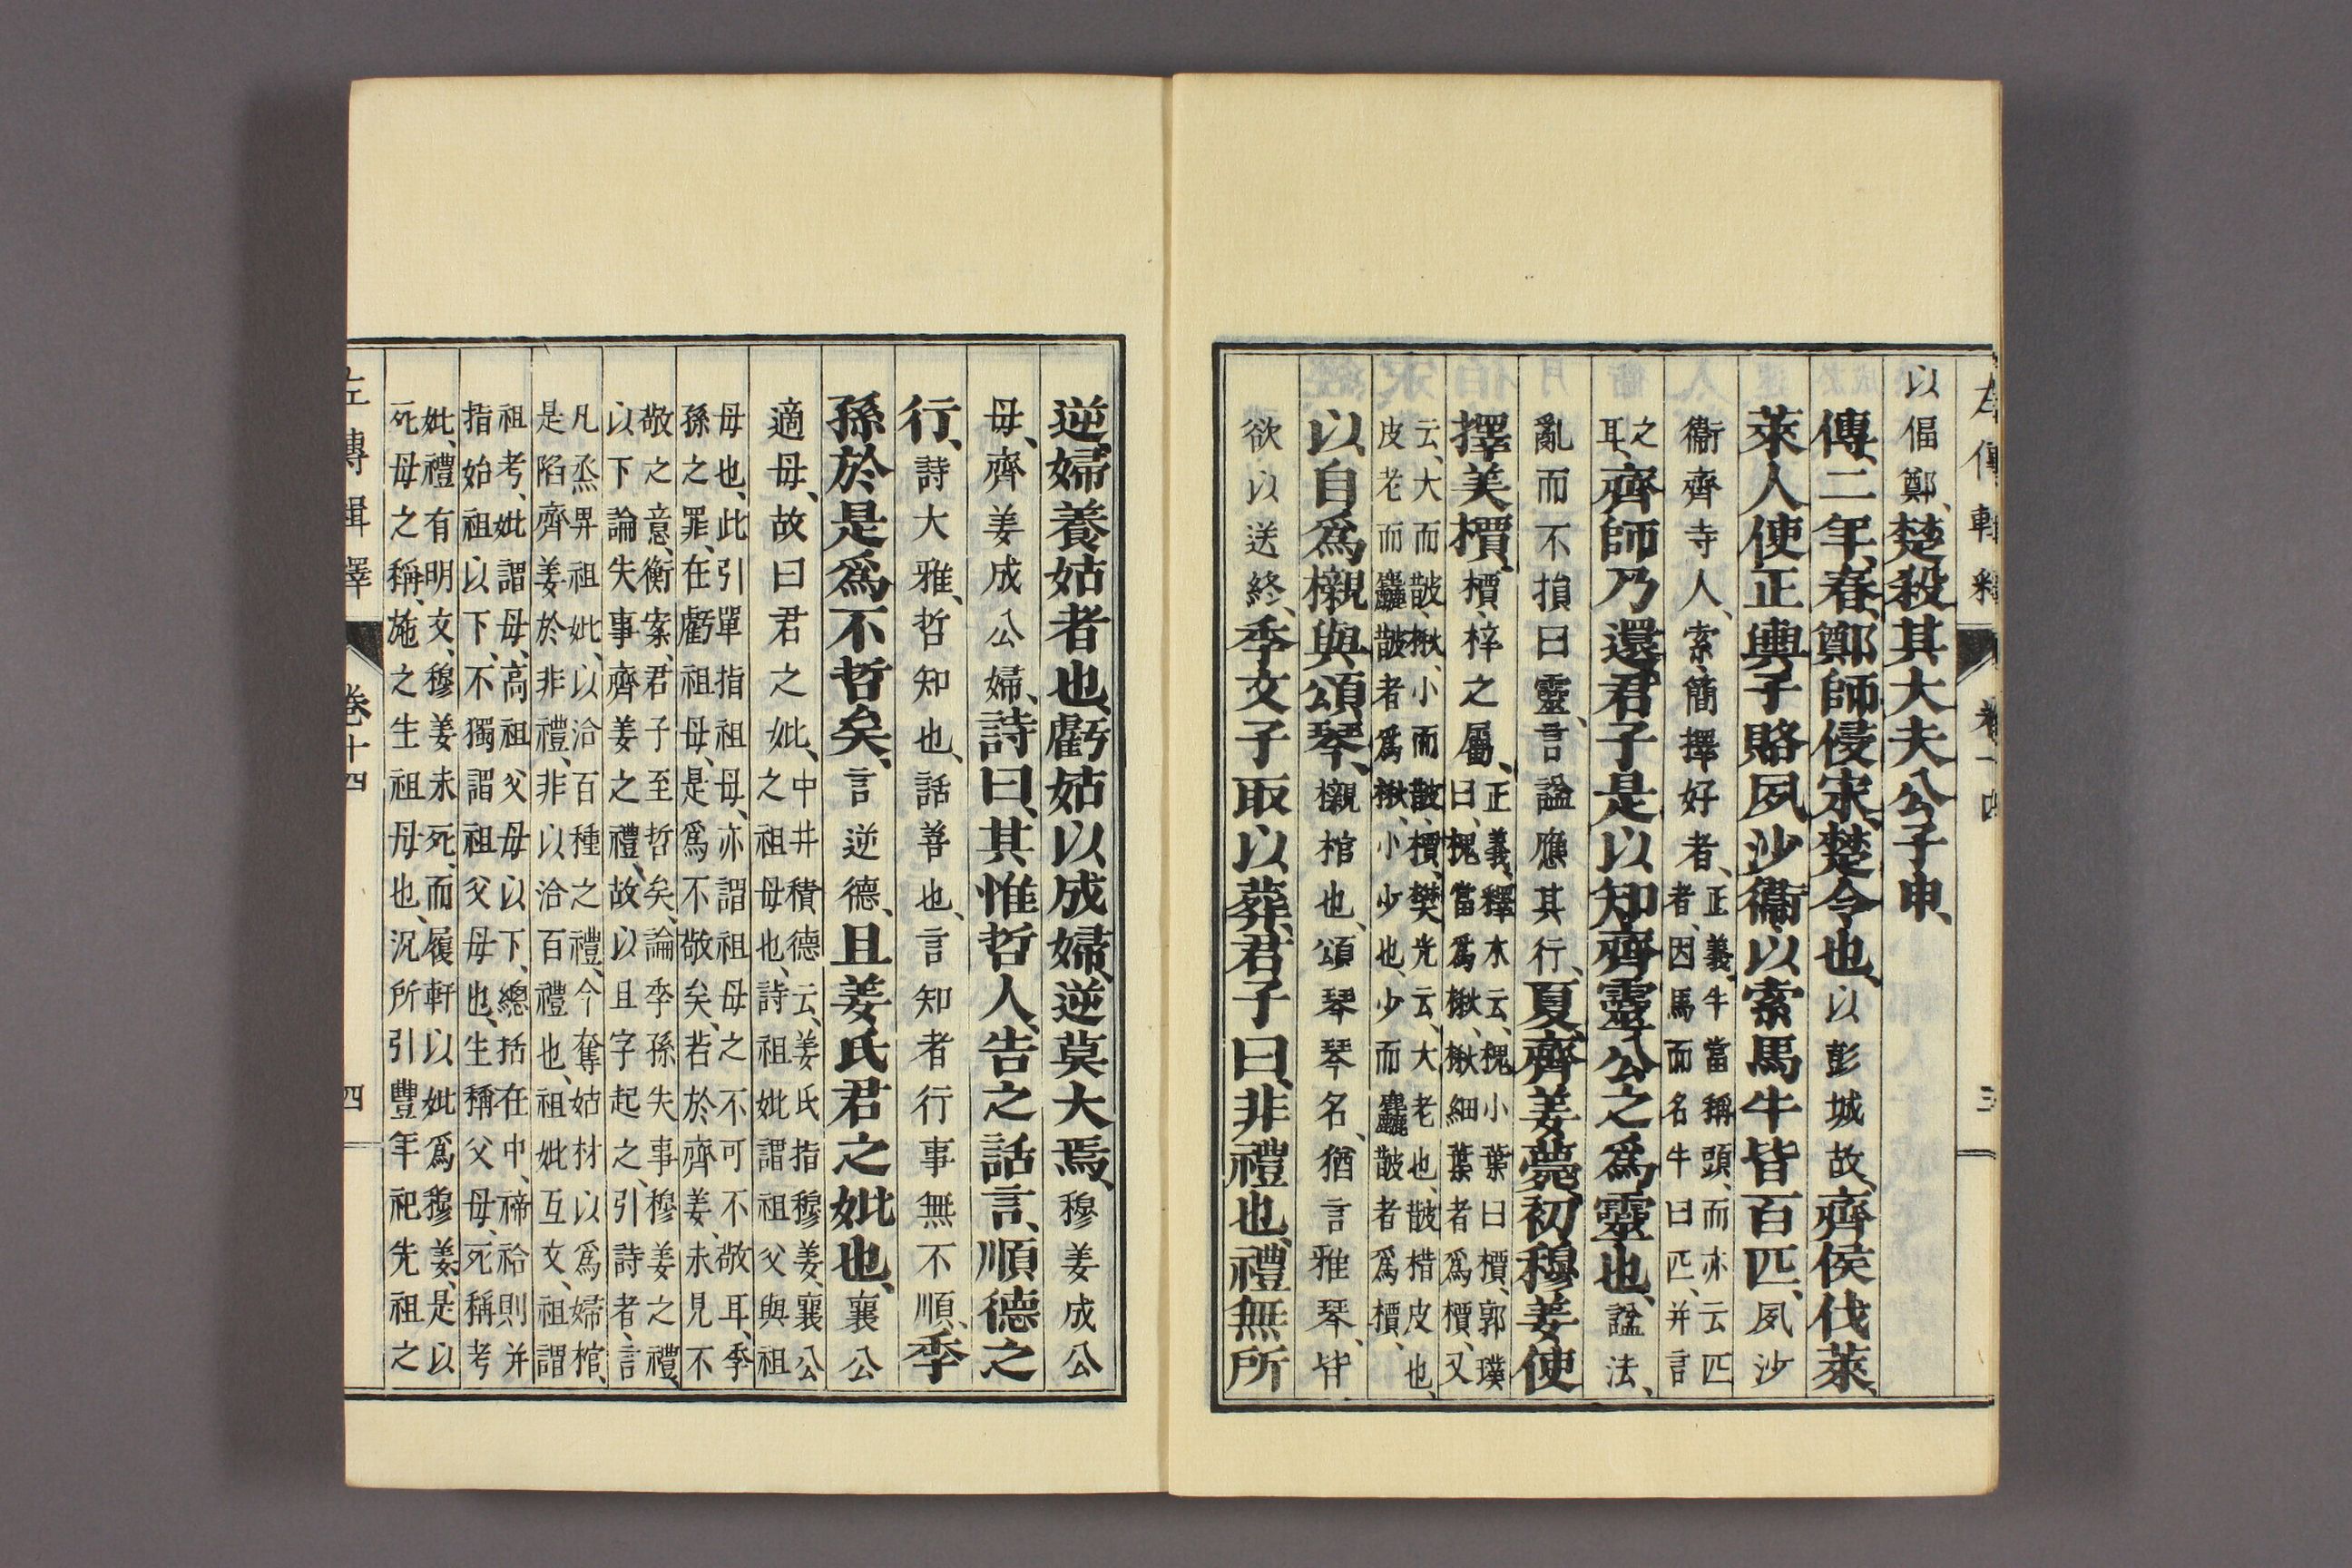 左傳輯釋 卷十四 三
以偪鄭、楚殺其大夫公子申、
傳、二年、春、鄭師侵宋、楚令也、以彭城故、齊侯伐萊、
萊人使正輿子賂夙沙衞、以索馬牛皆百匹、夙沙
衞齊寺人、索、簡擇好者、正義、牛當稱頭、而亦云匹
者、因馬而名牛曰匹、并言
之
耳、齊師乃還、君子是以知齊靈公之爲靈也、謚法、
亂而不損曰靈、言謚應其行、夏、齊姜薨、初穆姜使
擇美檟、檟、梓之屬、正義、釋木云、槐小葉曰檟、郭璞
曰、槐當爲楸、楸細葉者爲檟、又
云、大而皵、楸、小而皵、檟、樊光云、大老也、皵㮟皮也、
皮老而麤皵者爲楸、小少也、少而麤皵者爲檟、
以自爲櫬與頌琴、櫬棺也、頌琴琴名、猶言雅琴、皆、
欲以送終、季文子取以葬、君子曰、非禮也、禮無所
逆、婦養姑者也、虧姑以成婦、逆莫大焉、穆姜成公
母、齊姜成公婦、詩曰、其惟哲人、告之話言、順德之
行、詩大雅、哲知也、話善也、言知者行事無不順、季
孫於是爲不哲矣、言逆德、且姜氏君之妣也、襄公
適母、故曰君之妣、中井積德云、姜氏指穆姜、襄公
之祖母也、詩祖妣謂祖父與祖
母也、此引單指祖母、亦謂祖母之不可不敬耳、季
孫之罪、在虧祖母、是爲不敬矣、若於齊姜、未見不
敬之意、衡案、君子至哲矣、論季孫失事穆姜之禮、
以下論失事齊姜之禮、故以且字起之、引詩者、言
凡烝畀祖妣、以洽百種之禮、今奪姑材以爲婦棺、
是陷齊姜於非禮、非以洽百禮也、祖妣互文、祖謂
祖考、妣謂母、高祖父母以下、總括在中、禘祫則并
指始祖以下、不獨謂祖父母也、生稱父母、死稱考
妣、禮有明文、穆姜未死、而履軒以妣爲穆姜、是以
死母之稱、施之生祖母也、況所引豐年祀先祖之
左傳輯釋 卷十四 四